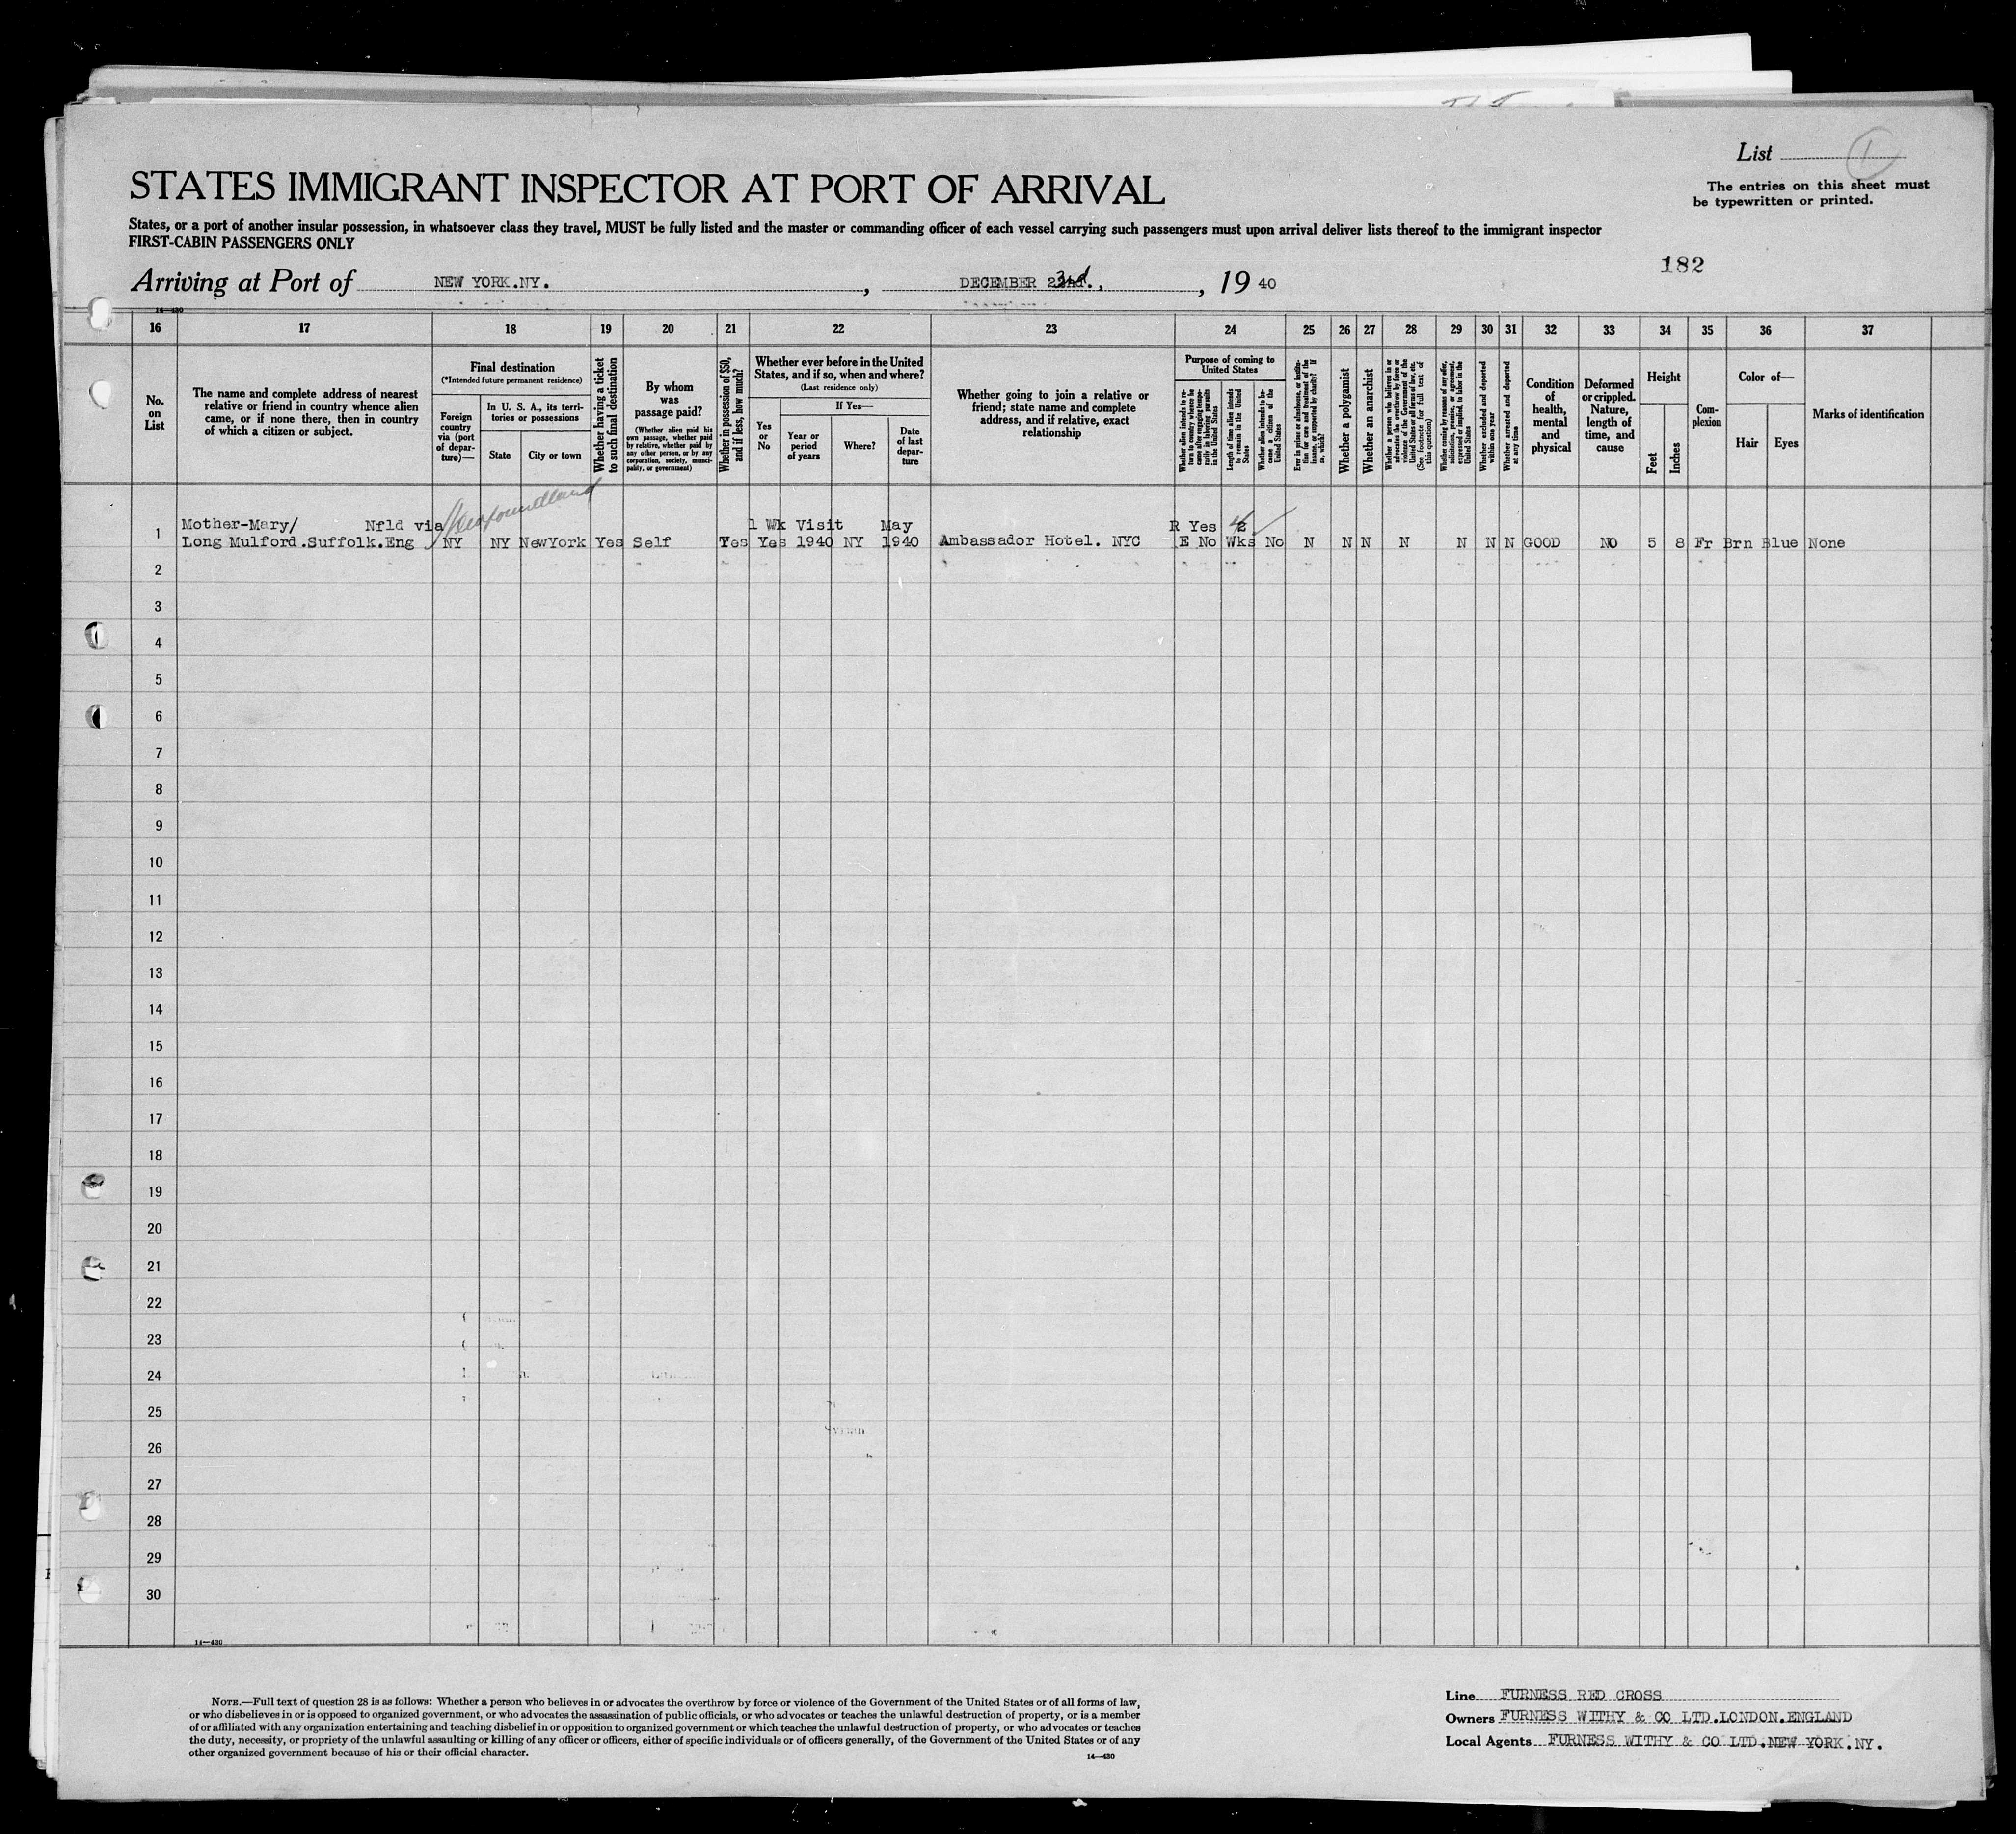 List 1
The entries on this sheet must
be typewritten or printed.
STATES IMMIGRANT INSPECTOR AT PORT OF ARRIVAL
States, or a port of another insular possession, in whatsoever class they travel, MUST be fully listed and the master or commanding officer of each vessel carrying such passengers must upon arrival deliver lists thereof to the immigrant inspector
FIRST-CABIN PASSENGERS ONLY
182
Arriving at Port of NEW YORK.NY. , DECEMBER 23d., , 19 40
14—430
16 17 18 19 20 21 22 23 24 25 26 27 28 29 30 31 32 33 34 35 36 37
No.
on
List
The name and complete address of nearest
relative or friend in country whence alien
came, or if none there, then in country
of which a citizen or subject.
Final destination
(*Intended future permanent residence)
Foreign
country
via (port
of depar-
ture)—
In U. S. A., its terri-
tories or possessions
State
City or town
Whether having a ticket
to such final destination
By whom
was
passage paid?
(Whether alien paid his
own passage, whether paid
by relative, whether paid by
any other person, or by any
corporation, society, munici-
pality, or government)
Whether in possession of $50,
and if less, how much?
Whether ever before in the United
States, and if so, when and where?
(Last residence only)
Yes
or
No
If Yes—
Year or
period
of years
Where?
Date
of last
depar-
ture
Whether going to join a relative or
friend; state name and complete
address, and if relative, exact
relationship
Purpose of coming to
United States
Whether alien intends to re-
turn to country whence he
came after engaging tempo-
rarily in laboring pursuits
in the United States
Length of time alien intends
to remain in the United
States
Whether alien intends to be-
come a citizen of the
United States
Ever in prison or almshouse, or institu-
tion for care and treatment of the
insane, or supported by charity? If
so, which?
Whether a polygamist
Whether an anarchist
Whether a person who believes in or
advocates the overthrow by force or
violence of the Government of the
United States or all forms of law, etc.
(See footnote for full text of
this question)
Whether coming by reason of any offer,
solicitation, promise, or agreement,
expressed or implied, to labor in the
United States
Whether excluded and deported
within one year
Whether arrested and deported
at any time
Condition
of
health,
mental
and
physical
Deformed
or crippled.
Nature,
length of
time, and
cause
Height
Feet
Inches
Com-
plexion
Color of—
Hair
Eyes
Marks of identification
Newfoundland
Mother-Mary/ Nfld via 1 Wk Visit May R Yes
1 Long Mulford.Suffolk.Eng NY NY NewYork Yes Self Yes Yes 1940 NY 1940 Ambassador Hotel. NYC E No Wks No N N N N N N N GOOD NO 5 8 Fr Brn Blue None
2
3
4
5
6
7
8
9
10
11
12
13
14
15
16
17
18
19
20
21
22
23
24
25
26
27
28
29
30
14—430
NOTE.—Full text of question 28 is as follows: Whether a person who believes in or advocates the overthrow by force or violence of the Government of the United States or of all forms of law,
or who disbelieves in or is opposed to organized government, or who advocates the assassination of public officials, or who advocates or teaches the unlawful destruction of property, or is a member
of or affiliated with any organization entertaining and teaching disbelief in or opposition to organized government or which teaches the unlawful destruction of property, or who advocates or teaches
the duty, necessity, or propriety of the unlawful assaulting or killing of any officer or officers, either of specific individuals or of officers generally, of the Government of the United States or of any
other organized government because of his or their official character.
14—430
Line FURNESS RED CROSS
Owners FURNESS WITHY & CO LTD.LONDON.ENGLAND
Local Agents FURNESS WITHY & CO LTD.NEW YORK.NY.